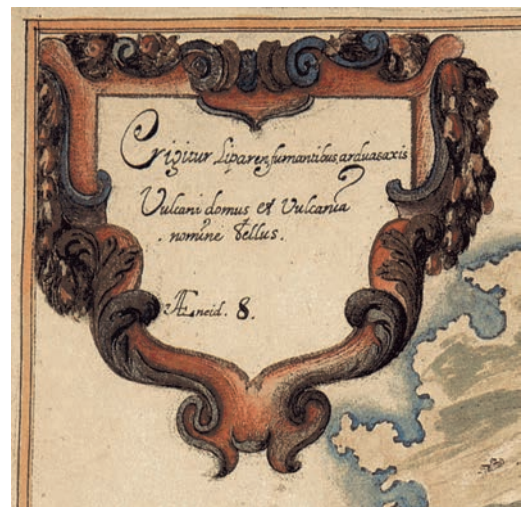 Erigitur Liparen fumantibus ardua saxis
Vulcani domus et Vulcania
nomine tellus.
Æneid. 8.